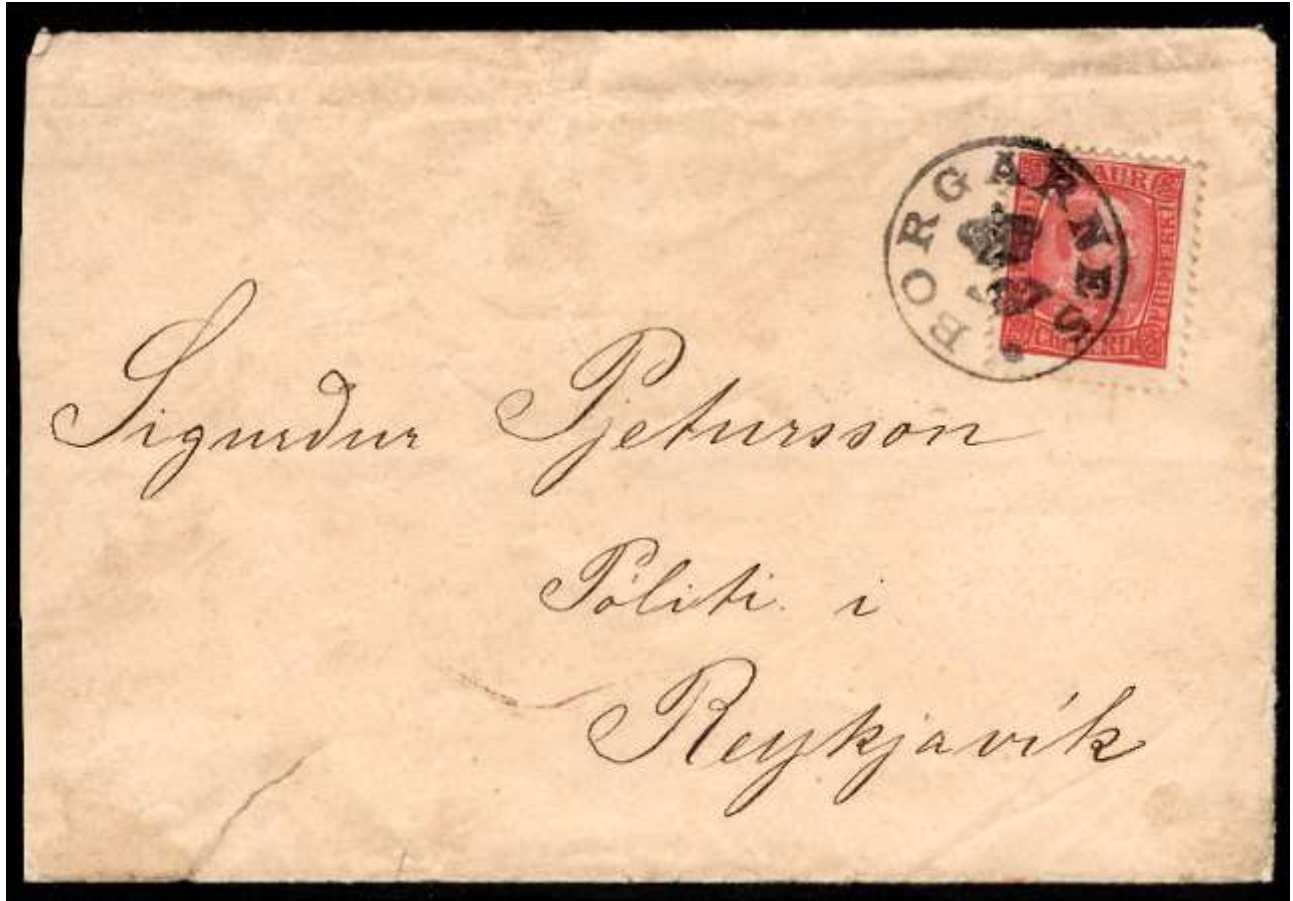 BORGARNES
AUR
FRIMERKI
Sigurður Pjetursson
Póliti í
Reykjavík